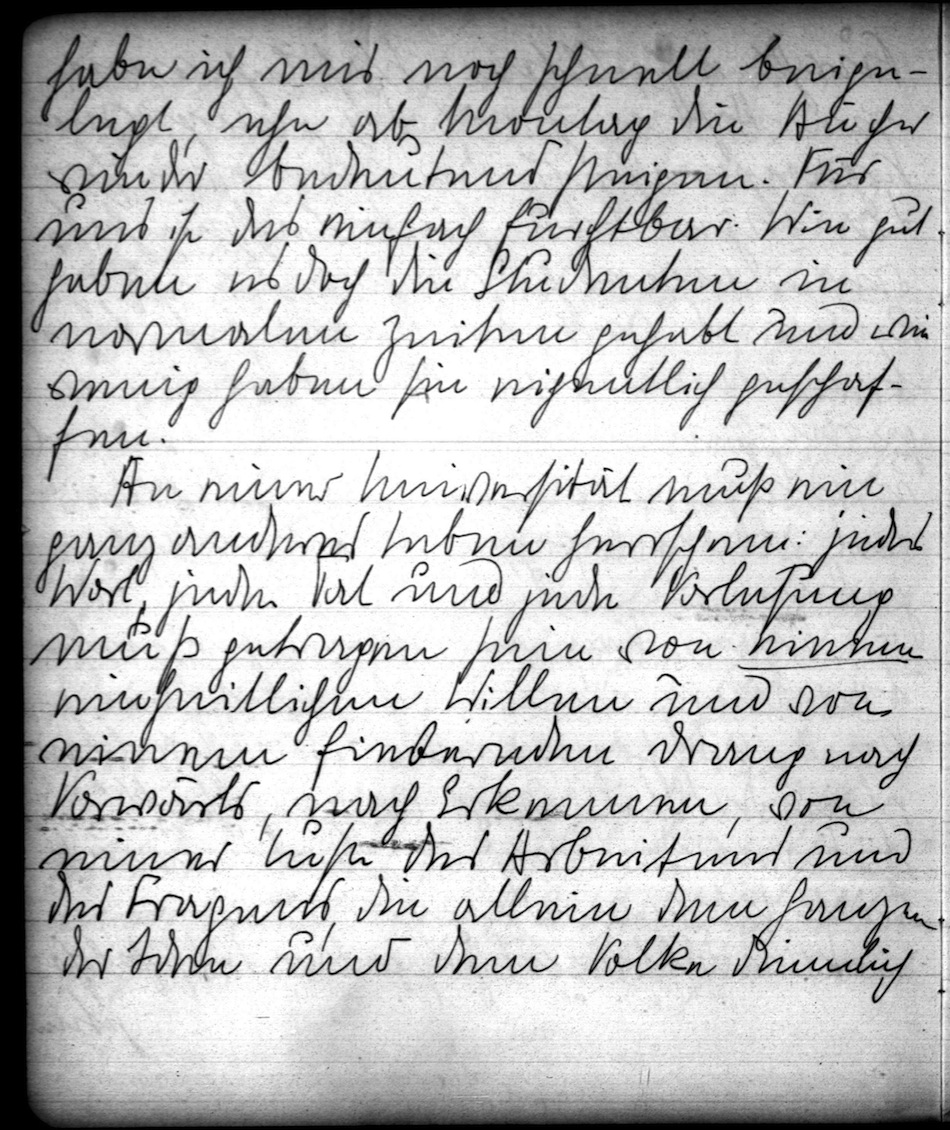 habe ich mir noch schnell beige-
legt, ehe ab Montag die Bücher
wieder bedeutend steigen. Für
uns ist das einfach furchtbar. Wie gut
haben es doch die Studenten in
normalen Zeiten gehabt und wie
wenig haben sie eigentlich geschaf-
fen.
An einer Universität muß ein
ganz anderes Leben herrschen: jedes
Wort, jede Tat und jede Vorlesung
muß getragen sein von einem
einheitlichen Willen und von
einem fiebernden Drang nach
Vorwärts, nach Erkennen, von
einer Lust des Arbeitens und
des Fragens, die allein dem Ganzen
der Idee und dem Volke dienlich